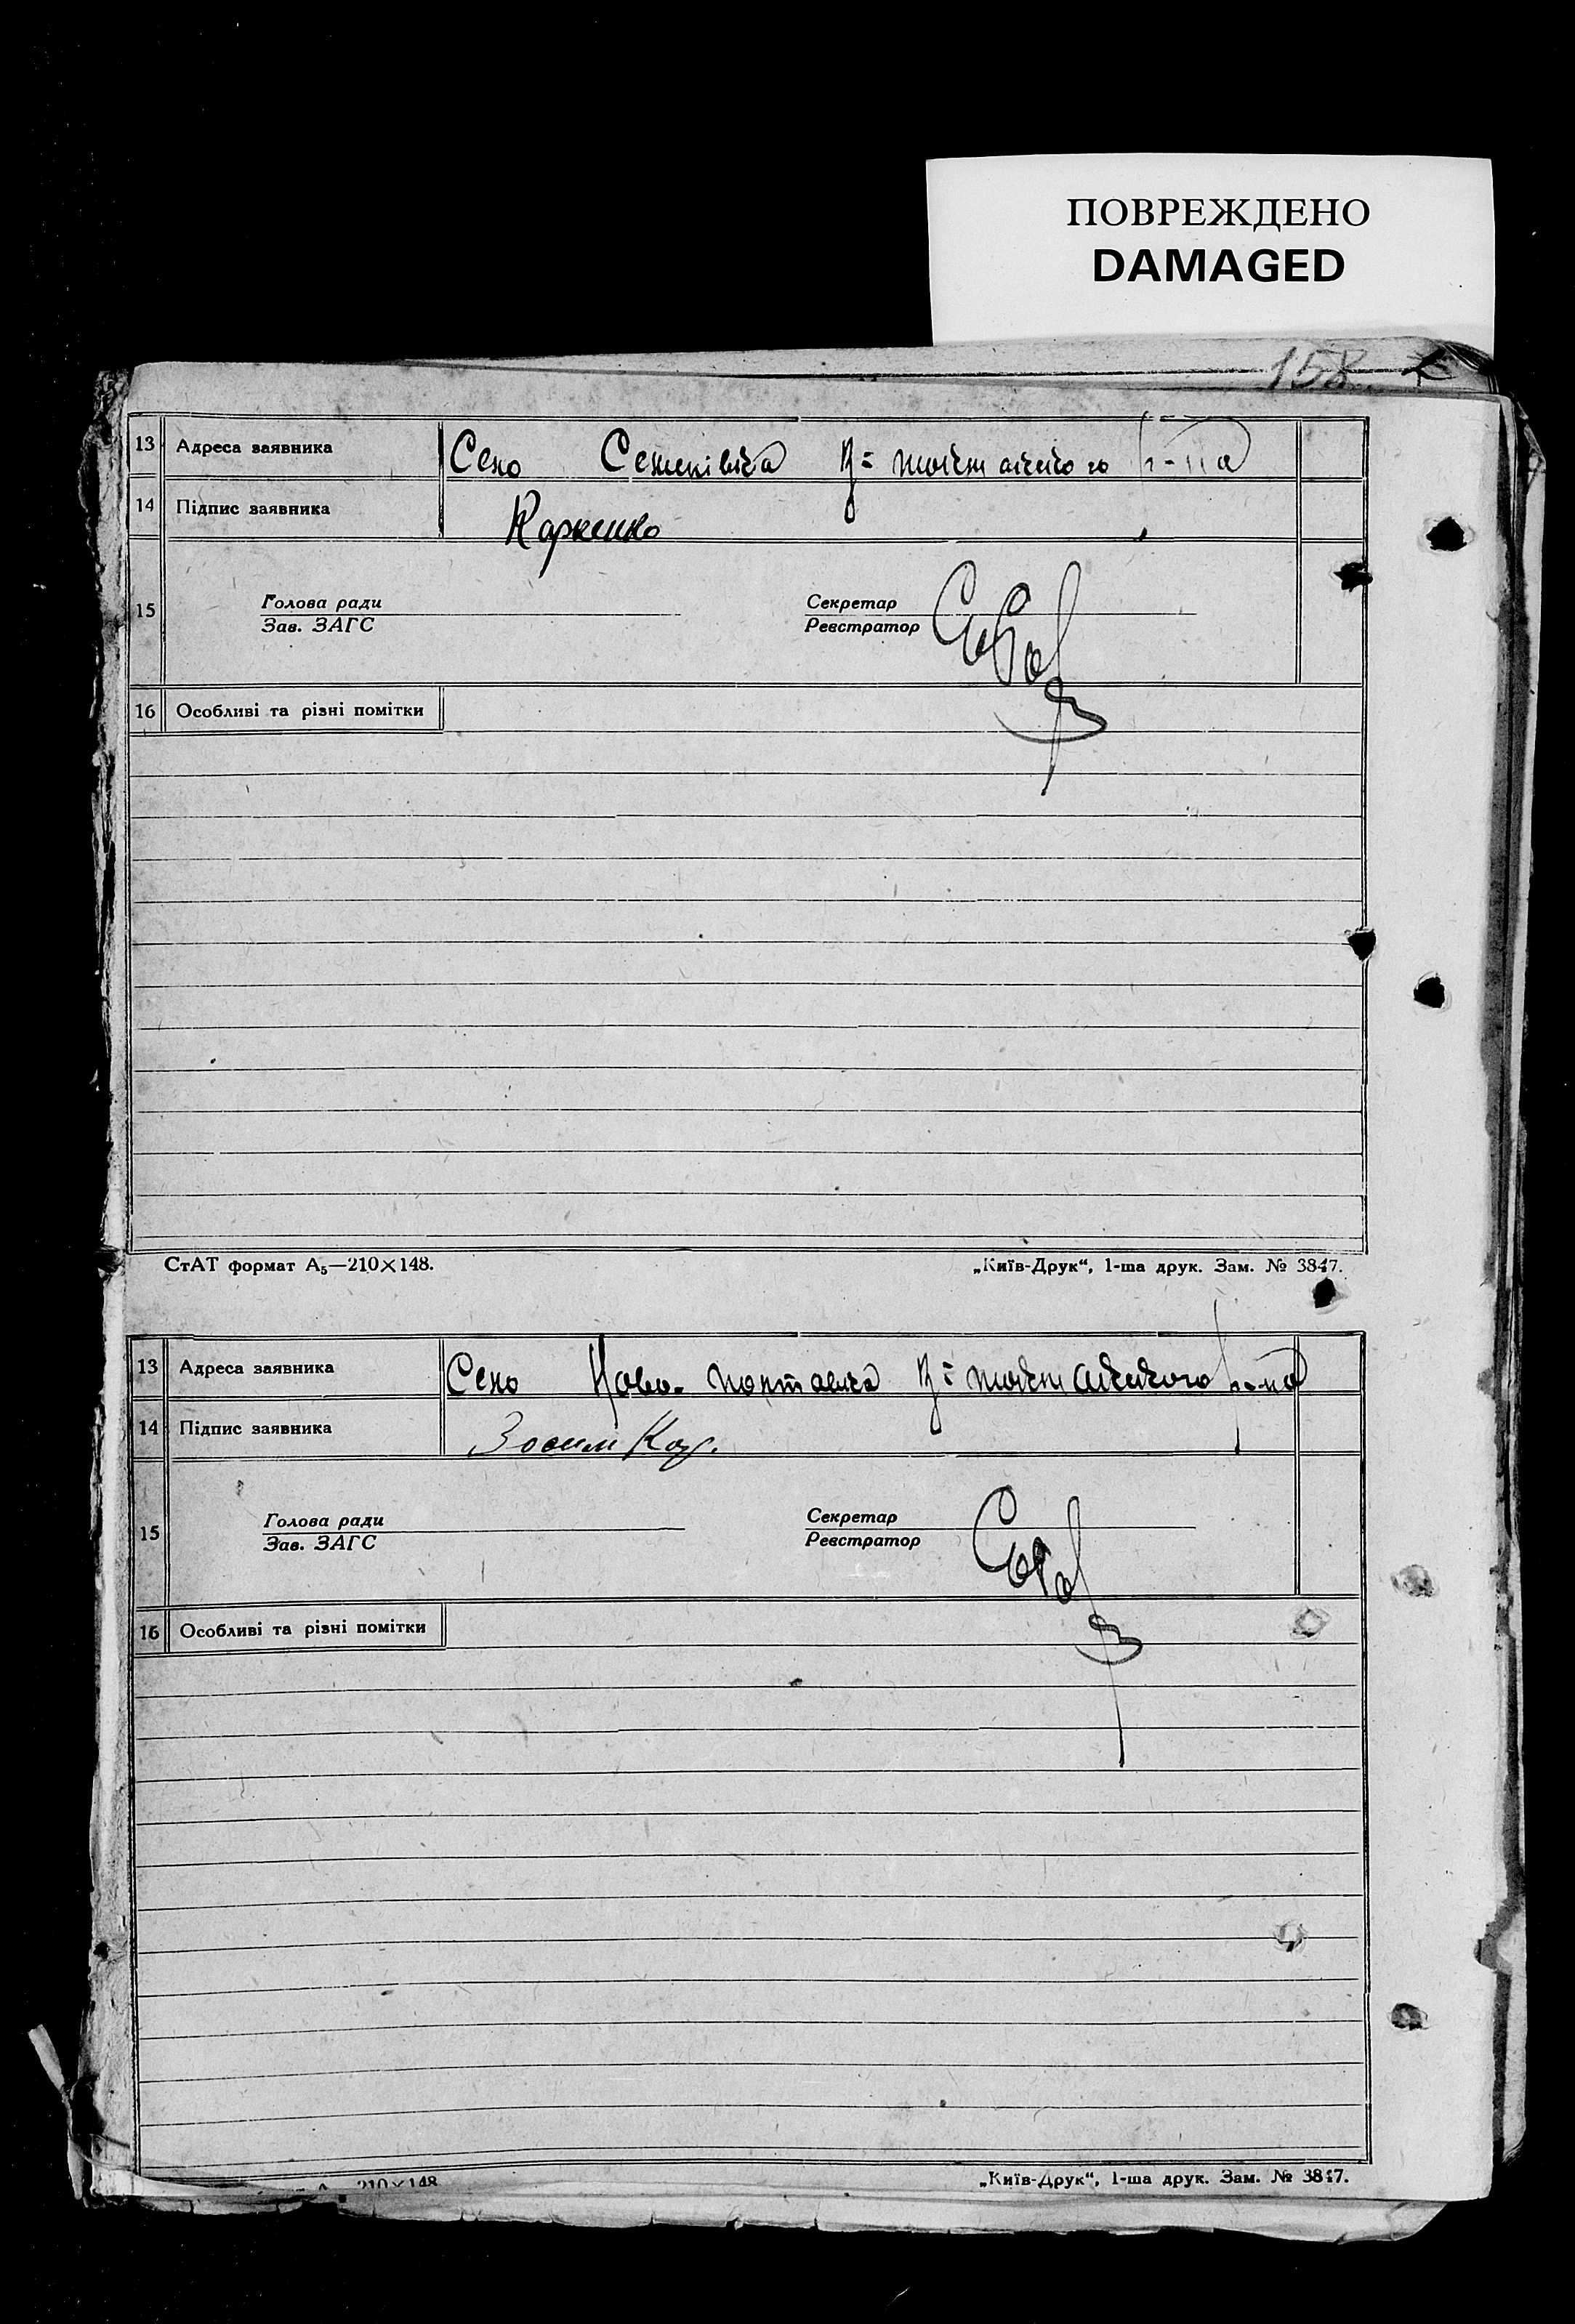 ПОВРЕЖДЕНО
DAMAGED
158
13 Адреса заявника Село Семенівка
14 Підпис заявника
15 Голова ради Секретар
Зав. ЗАГС Реєстратор
16 Особливі та різні помітки
СтАТ формат А₅—210×148. „Київ-Друк“, 1-ша друк. Зам. № 3847.
13 Адреса заявника Село Ново-
14 Підпис заявника Зосим
15 Голова ради Секретар
Зав. ЗАГС Реєстратор
16 Особливі та різні помітки
210×148 „Київ-Друк“, 1-ша друк. Зам. № 3847.